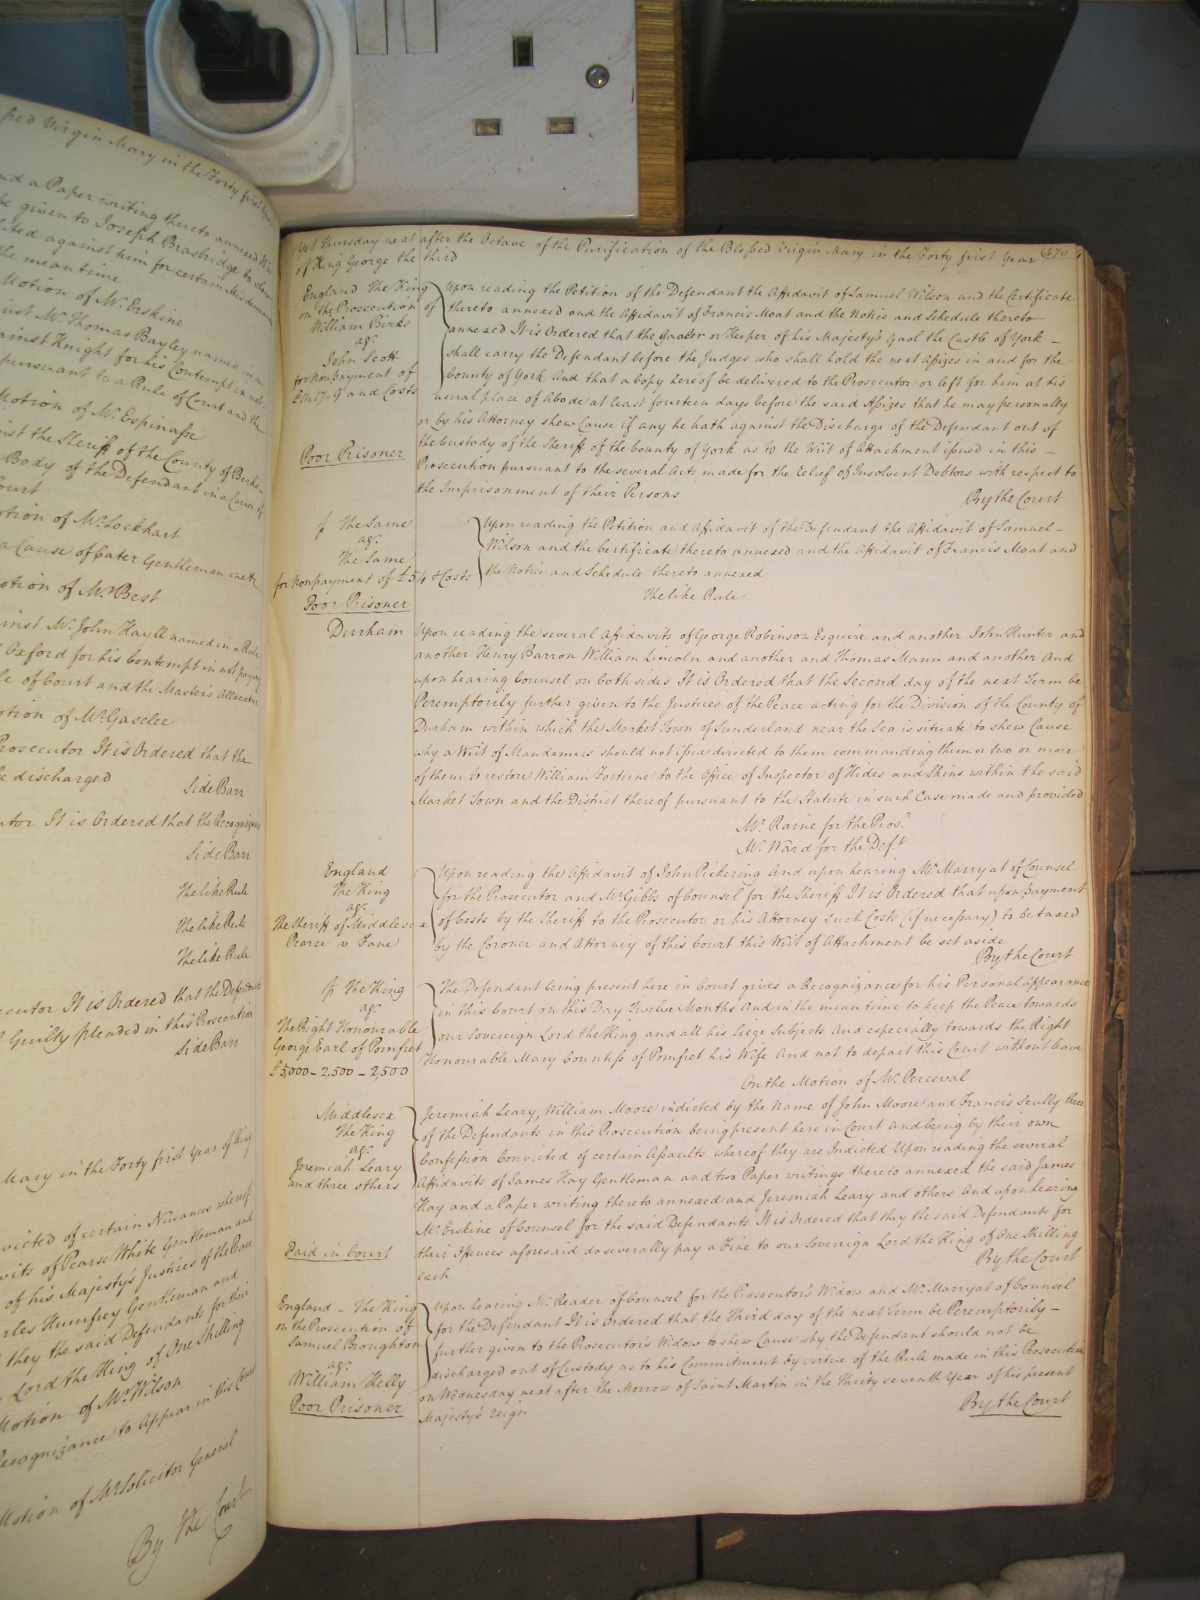 ssed Virgin Mary in the Forty first Year
nd a Paper writing thereto annexed It is
be given to Joseph Brasbridge to shew
ibited against him for certain Misdemeanors
the mean time
Motion of Mr. Erskine
inst Mr. Thomas Bayley named in a
ainst Knight for his Contempt in not
pursuant to a Rule of Court and the
Motion of Mr. Espinasse
nst the Sheriff of the County of Berks
Body of the Defendant in a Cause of
Court
otion of Mr. Lockhart
a Cause of Cater Gentleman one &c
otion of Mr. Best
inst Mr. John Hayll named in a Rule
Oxford for his Contempt in not paying
le of Court and the Master's Allocatur
otion of Mr. Gaselee
Prosecutor It is Ordered that the
be discharged
Side Barr
utor It is Ordered that the Recognizance
Side Barr
The like Rule
The like Rule
The like Rule
ecutor It is Ordered that the Defendant
Guilty pleaded in this Prosecution
Side Barr
Mary in the Forty first Year of King
victed of certain Nusances whereof
vits of Pearse White Gentleman and
of his Majesty's Justices of the Peace
rles Humfrey Gentleman and
they the said Defendants for their
n Lord the King of One Shilling
Motion of Mr. Wilson
Recognizance to Appear in this Court
Motion of Mr. Solicitor General
By the Court
Yet Thursday next after the Octave of the Purification of the Blessed Virgin Mary in the Forty first Year
of King George the third
England The King
on the Prosecution of
William Birks
agt.
John Scott
for Nonpayment of
and Costs
Poor Prisoner
Upon reading the Petition of the Defendant the Affidavit of Samuel Wilson and the Certificate
thereto annexed and the Affidavit of Francis Moat and the Notice and Schedule thereto
annexed It is Ordered that the Gaoler or Keeper of his Majesty's Gaol the Castle of York
shall carry the Defendant before the Judges who shall hold the next Assizes in and for the
County of York And that a Copy hereof be delivered to the Prosecutor or left for him at his
usual place of Abode at least fourteen days before the said Assizes that he may personally
or by his Attorney shew Cause if any he hath against the Discharge of the Defendant out of
the Custody of the Sheriff of the County of York as to the Writ of Attachment issued in this
Prosecution pursuant to the several Acts made for the Relief of Insolvent Debtors with respect to
the Imprisonment of their Persons
By the Court
If The Same
agt.
The Same
for Nonpayment of £54 & Costs
Poor Prisoner
Upon reading the Petition and Affidavit of the Defendant the Affidavit of Samuel
Wilson and the Certificate thereto annexed and the Affidavit of Francis Moat and
the Notice and Schedule thereto annexed
The like Rule
Durham
Upon reading the several Affidavits of George Robinson Esquire and another John Hunter and
another Henry Barron William Lincoln and another and Thomas Mann and another And
upon hearing Counsel on both sides It is Ordered that the Second day of the next Term be
Peremptorily further given to the Justices of the Peace acting for the Division of the County of
Durham within which the Market Town of Sunderland near the Sea is situate to shew Cause
why a Writ of Mandamus should not issue directed to them commanding them or two or more
of them to restore William Fortune to the Office of Inspector of Hides and Skins within the said
Market Town and the District thereof pursuant to the Statute in such Case made and provided
Mr. Raine for the Pros.r
Mr. Ward for the Def.t
England
The King
agt.
The Sheriff of Middlesex
Pearce v Fane
Upon reading the Affidavit of John Pickering And upon hearing Mr. Marryat of Counsel
for the Prosecutor and Mr. Gibbs of Counsel for the Sheriff It is Ordered that upon payment
of Costs by the Sheriff to the Prosecutor or his Attorney such Costs (if necessary) to be taxed
by the Coroner and Attorney of this Court this Writ of Attachment be set aside
By the Court
If The King
agt.
The Right Honourable
George Earl of Pomfret
£5,000 – 2,500 – 2,500
The Defendant being present here in Court gives a Recognizance for his Personal Appearance
in this Court on this Day Twelve Months And in the mean time to keep the Peace towards
our Sovereign Lord the King and all his Liege Subjects And especially towards the Right
Honourable Mary Countess of Pomfret his Wife And not to depart this Court without leave
On the Motion of Mr. Perceval
Middlesex
The King
agt.
Jeremiah Leary
and three others
Paid in Court
Jeremiah Leary, William Moore indicted by the Name of John Moore and Francis Scully three
of the Defendants in this Prosecution being present here in Court And being by their own
Confession Convicted of certain Assaults whereof they are Indicted Upon reading the several
Affidavits of James Hay Gentleman and two Paper writings thereto annexed the said James
Hay and a Paper writing thereto annexed and Jeremiah Leary and others And upon hearing
Mr. Erskine of Counsel for the said Defendants It is Ordered that they the said Defendants for
their Offences aforesaid do severally pay a Fine to our Sovereign Lord the King of One Shilling
each
By the Court
England – The King
on the Prosecution of
Samuel Broughton
agt.
William Kelly
Poor Prisoner
Upon hearing Mr. Reader of Counsel for the Prosecutor's Widow and Mr. Marryat of Counsel
for the Defendant It is Ordered that the Third day of the next Term be Peremptorily
further given to the Prosecutor's Widow to shew Cause why the Defendant should not be
discharged out of Custody as to his Commitment by virtue of the Rule made in this Prosecution
on Wednesday next after the Morrow of Saint Martin in the thirty seventh Year of his present
Majesty's reign
By the Court